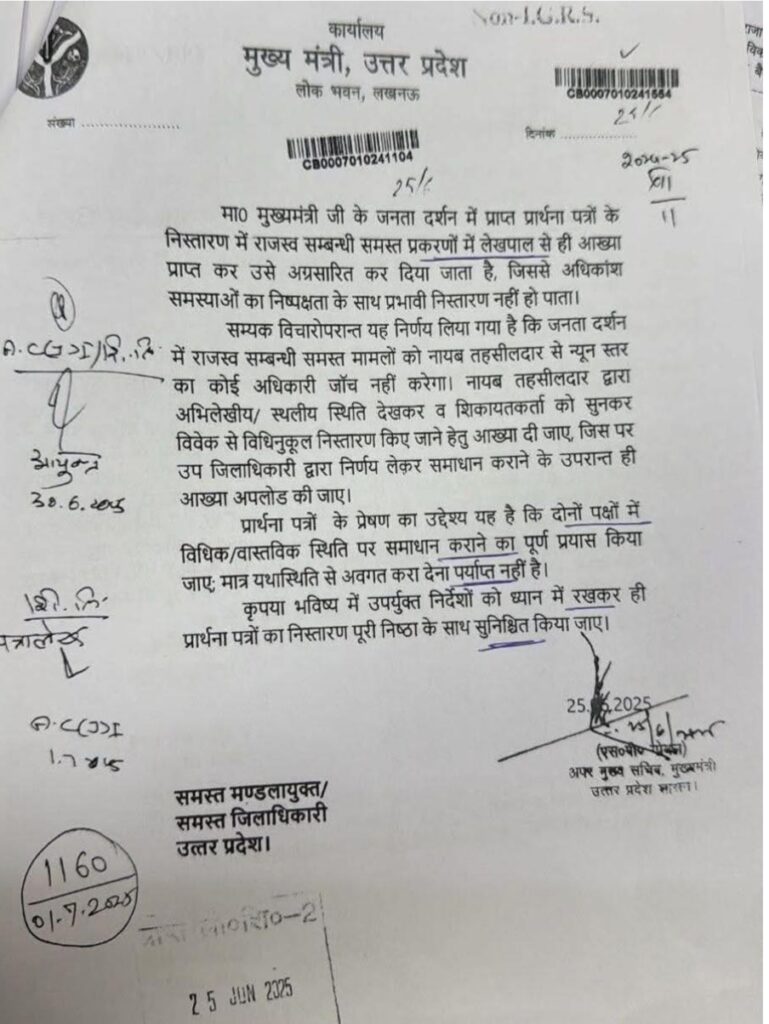 Non-I.G.R.S.
कार्यालय
मुख्य मंत्री, उत्तर प्रदेश
लोक भवन, लखनऊ
CB0007010241564
25/6
संख्या ....................
दिनांक ....................
CB0007010241104
25/6
2024-25
11
मा0 मुख्यमंत्री जी के जनता दर्शन में प्राप्त प्रार्थना पत्रों के
निस्तारण में राजस्व सम्बन्धी समस्त प्रकरणों में लेखपाल से ही आख्या
प्राप्त कर उसे अग्रसारित कर दिया जाता है, जिससे अधिकांश
समस्याओं का निष्पक्षता के साथ प्रभावी निस्तारण नहीं हो पाता।
सम्यक विचारोपरान्त यह निर्णय लिया गया है कि जनता दर्शन
में राजस्व सम्बन्धी समस्त मामलों को नायब तहसीलदार से न्यून स्तर
का कोई अधिकारी जॉच नहीं करेगा। नायब तहसीलदार द्वारा
अभिलेखीय/ स्थलीय स्थिति देखकर व शिकायतकर्ता को सुनकर
विवेक से विधिनुकूल निस्तारण किए जाने हेतु आख्या दी जाए, जिस पर
उप जिलाधिकारी द्वारा निर्णय लेकर समाधान कराने के उपरान्त ही
आख्या अपलोड की जाए।
प्रार्थना पत्रों के प्रेषण का उद्देश्य यह है कि दोनों पक्षों में
विधिक/वास्तविक स्थिति पर समाधान कराने का पूर्ण प्रयास किया
जाए; मात्र यथास्थिति से अवगत करा देना पर्याप्त नहीं है।
कृपया भविष्य में उपर्युक्त निर्देशों को ध्यान में रखकर ही
प्रार्थना पत्रों का निस्तारण पूरी निष्ठा के साथ सुनिश्चित किया जाए।
आयुक्त
30.6.2025
25.06.2025
अपर मुख्य सचिव, मुख्यमंत्री
उत्तर प्रदेश शासन।
समस्त मण्डलायुक्त/
समस्त जिलाधिकारी
उत्तर प्रदेश।
1160
01.7.2025
25 JUN 2025